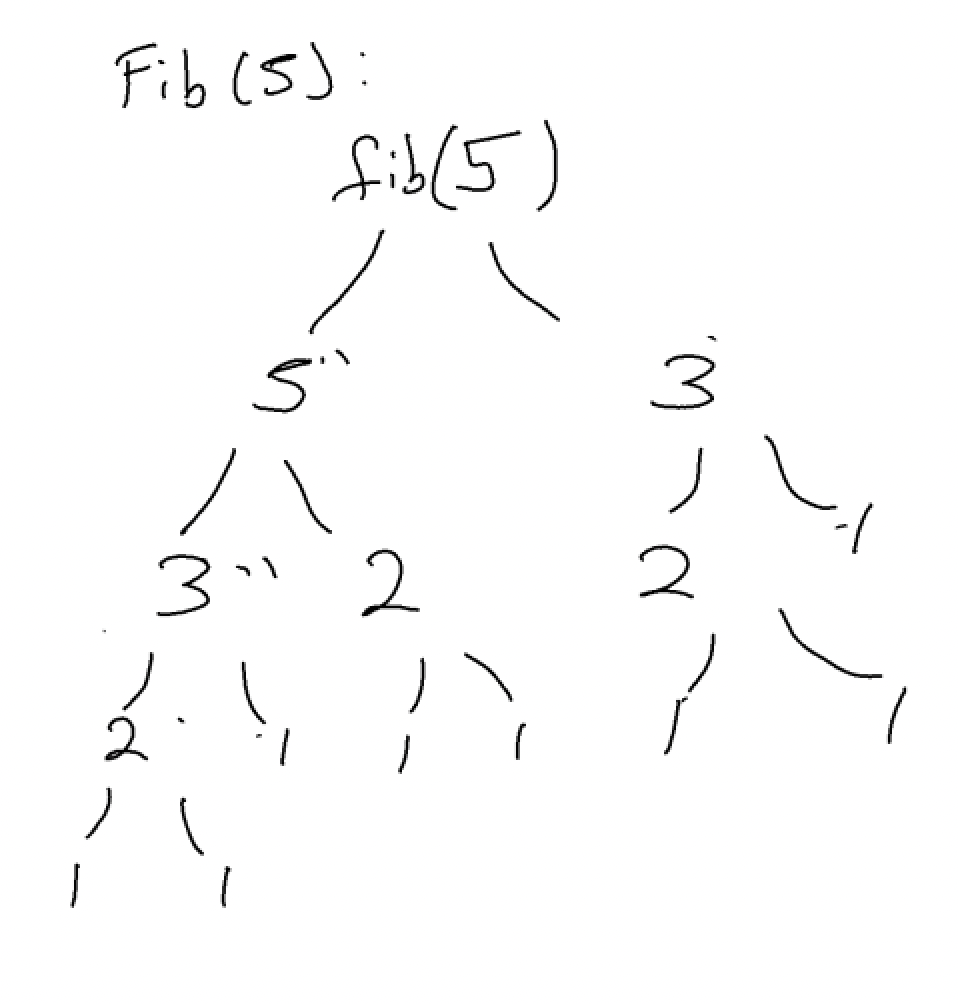 Fib(5):
fib(5)
5 3
3 2 2 1
2 1 1 1 1 1
1 1